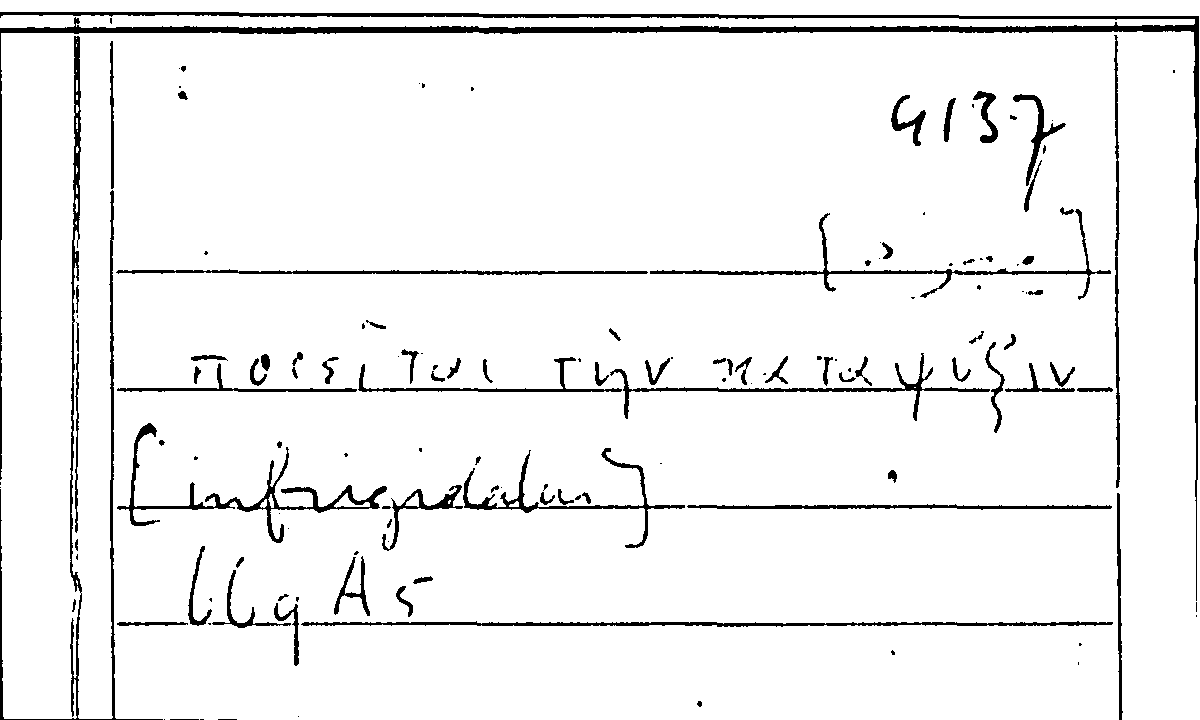 4137
ποιεῖται τὴν κατάψυξιν
[infrigidatur]
669 A 5